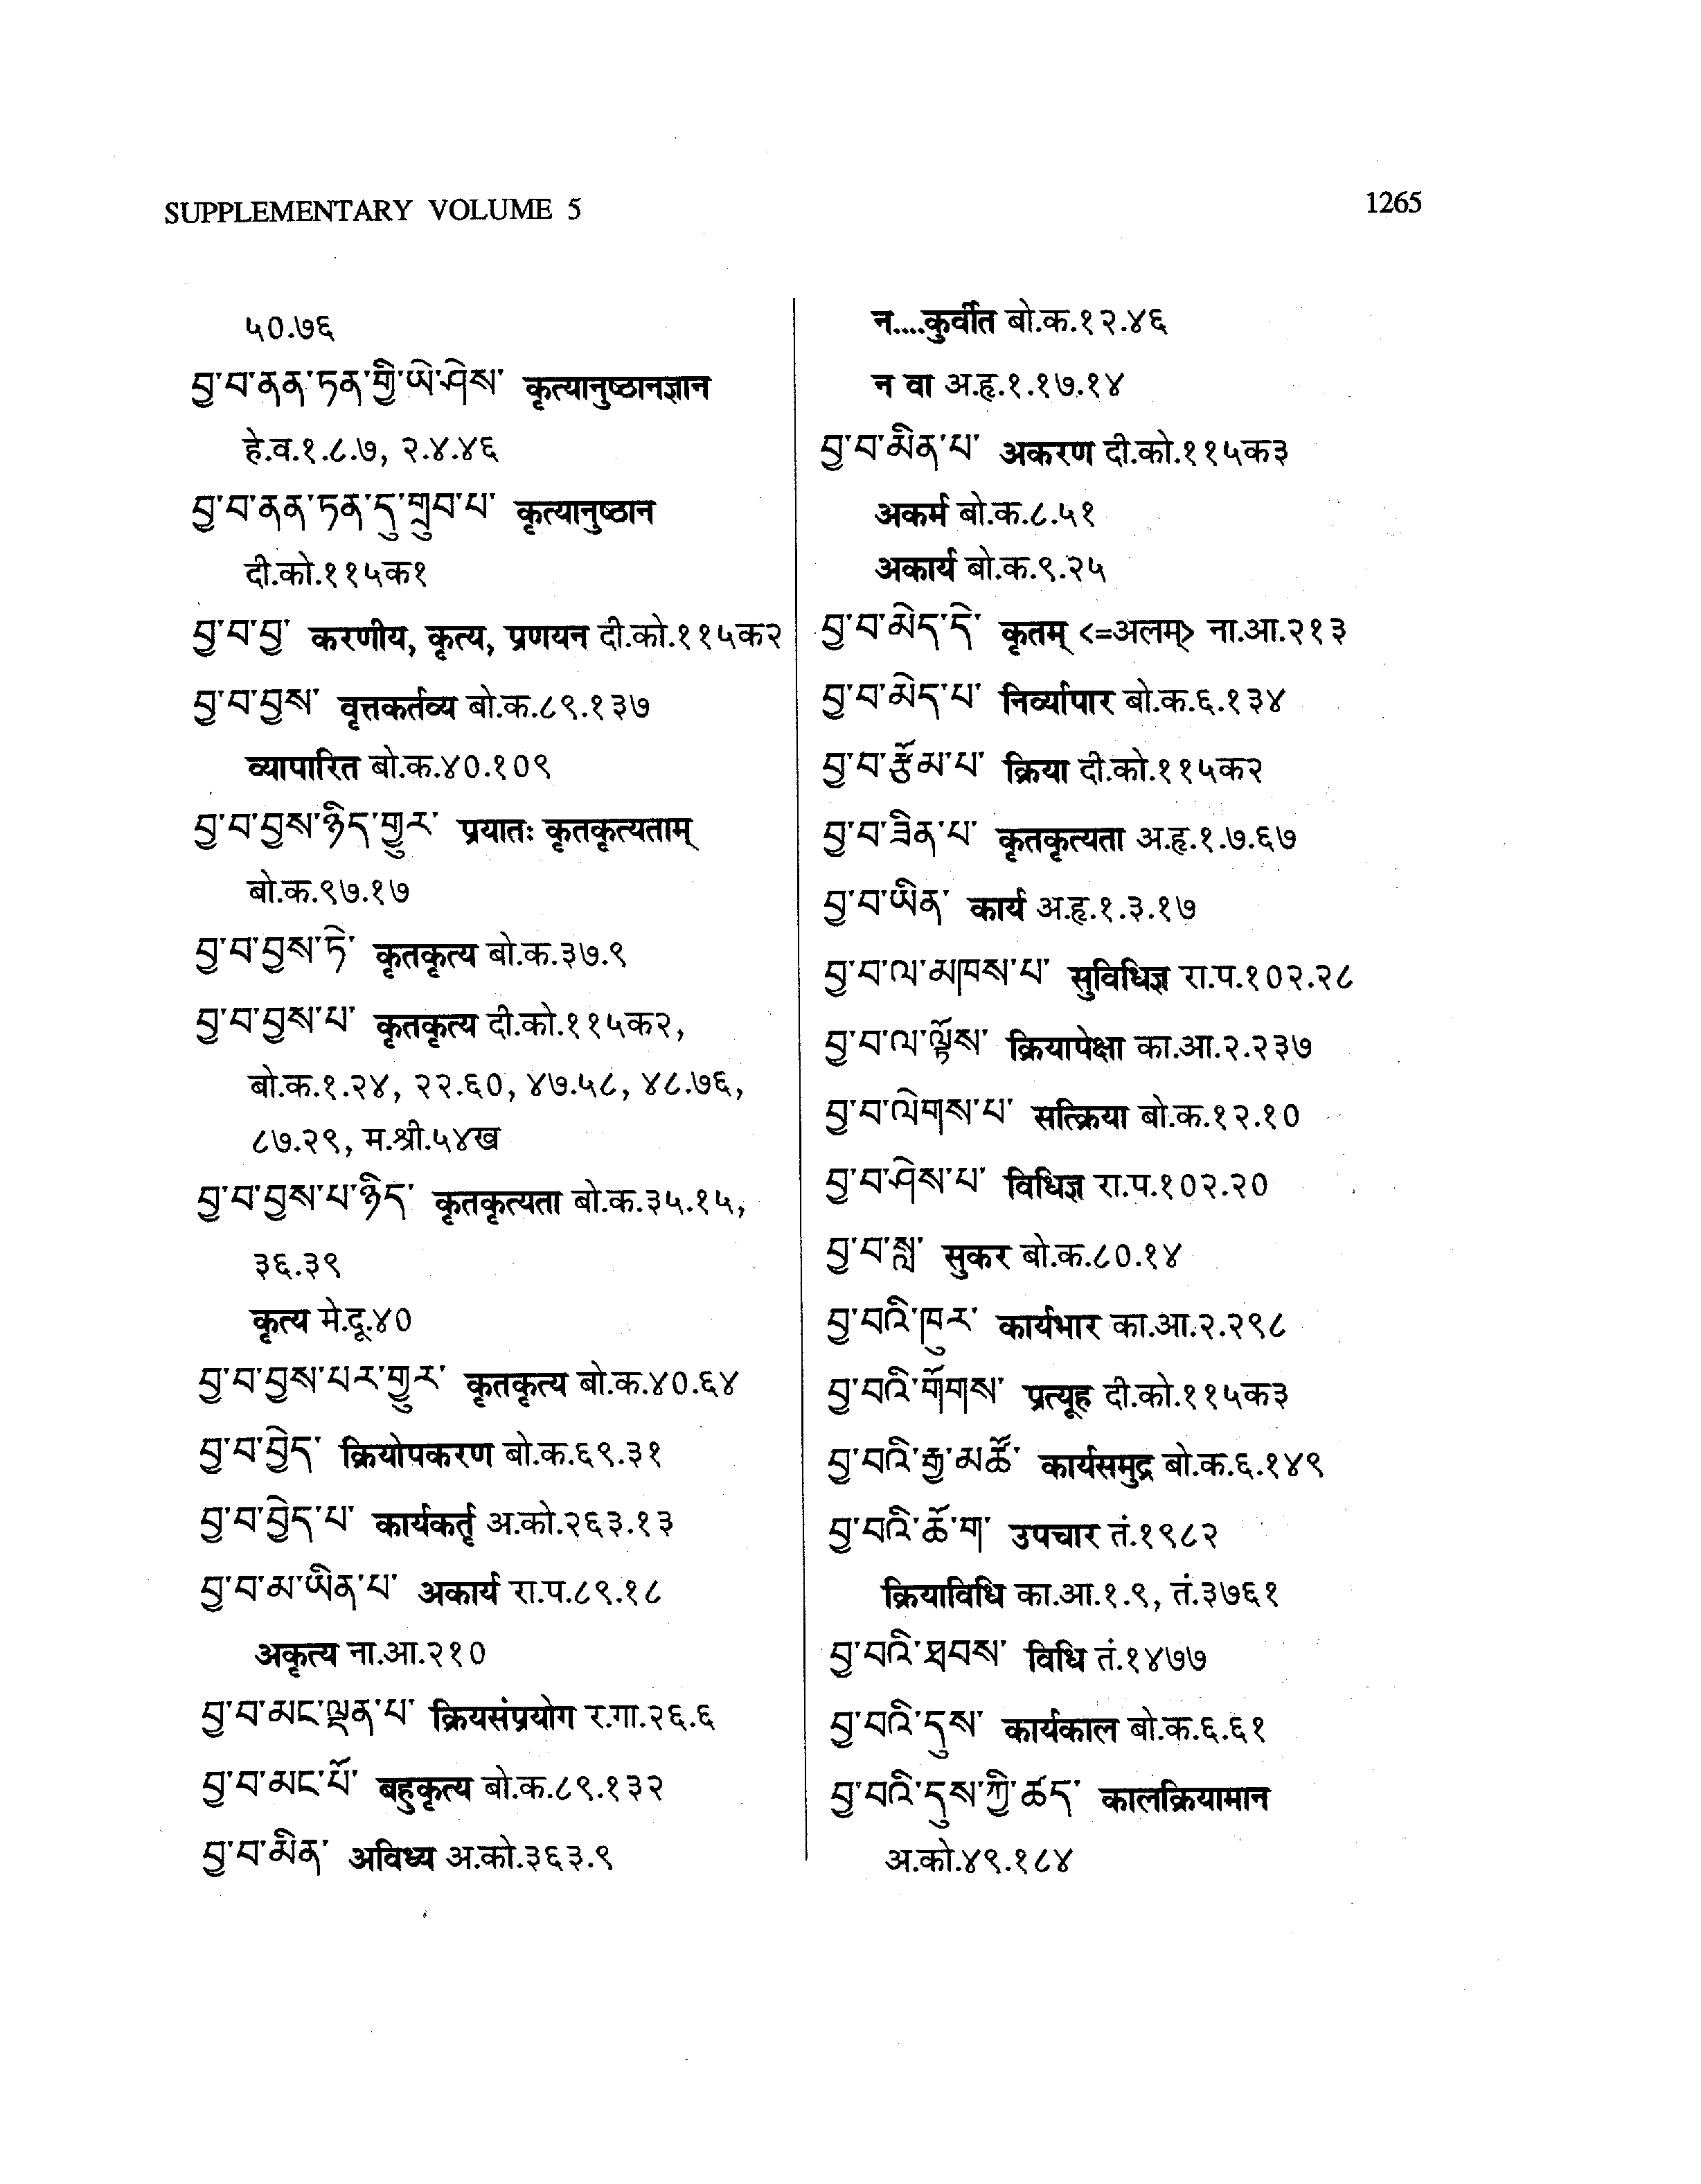 SUPPLEMENTARY VOLUME 5
1265
५0.७६
བྱ་བ་ནན་ཏན་གྱི་ཡེ་ཤེས་ कृत्यानुष्ठानज्ञान
हे.व.१.८.७, २.४.४६
བྱ་བ་ནན་ཏན་དུ་གྲུབ་པ་ कृत्यानुष्ठान
दी.को.११५क१
བྱ་བ་བྱ་ करणीय, कृत्य, प्रणयन दी.को.११५क२
བྱ་བ་བྱས་ वृत्तकर्तव्य बो.क.८९.१३७
व्यापारित बो.क.४0.१0९
བྱ་བ་བྱས་ཉིད་གྱུར་ प्रयातः कृतकृत्यताम्
बो.क.९७.१७
བྱ་བ་བྱས་ཏེ་ कृतकृत्य बो.क.३७.९
བྱ་བ་བྱས་པ་ कृतकृत्य दी.को.११५क२,
बो.क.१.२४, २२.६0, ४७.५८, ४८.७६,
८७.२९, म.श्री.५४ख
བྱ་བ་བྱས་པ་ཉིད་ कृतकृत्यता बो.क.३५.१५,
३६.३९
कृत्य मे.दू.४0
བྱ་བ་བྱས་པར་གྱུར་ कृतकृत्य बो.क.४0.६४
བྱ་བ་བྱེད་ क्रियोपकरण बो.क.६९.३१
བྱ་བ་བྱེད་པ་ कार्यकर्तृ अ.को.२६३.१३
བྱ་བ་མ་ཡིན་པ་ अकार्य रा.प.८९.१८
अकृत्य ना.आ.२१0
བྱ་བ་མང་ལྡན་པ་ क्रियसंप्रयोग र.गा.२६.६
བྱ་བ་མང་པོ་ बहुकृत्य बो.क.८९.१३२
བྱ་བ་མིན་ अविध्य अ.को.३६३.९
न....कुर्वीत बो.क.१२.४६
न वा अ.हृ.१.१७.१४
བྱ་བ་མིན་པ་ अकरण दी.को.११५क३
अकर्म बो.क.८.५१
अकार्य बो.क.९.२५
བྱ་བ་མེད་དེ་ कृतम् <=अलम्> ना.आ.२१३
བྱ་བ་མེད་པ་ निर्व्यापार बो.क.६.१३४
བྱ་བ་རྩོམ་པ་ क्रिया दी.को.११५क२
བྱ་བ་ཟིན་པ་ कृतकृत्यता अ.हृ.१.७.६७
བྱ་བ་ཡིན་ कार्य अ.हृ.१.३.१७
བྱ་བ་ལ་མཁས་པ་ सुविधिज्ञ रा.प.१0२.२८
བྱ་བ་ལ་ལྟོས་ क्रियापेक्षा का.आ.२.२३७
བྱ་བ་ལེགས་པ་ सत्क्रिया बो.क.१२.१0
བྱ་བ་ཤེས་པ་ विधिज्ञ रा.प.१0२.२0
བྱ་བ་སླ་ सुकर बो.क.८0.१४
བྱ་བའི་ཁུར་ कार्यभार का.आ.२.२९८
བྱ་བའི་གོགས་ प्रत्यूह दी.को.११५क३
བྱ་བའི་རྒྱ་མཚོ་ कार्यसमुद्र बो.क.६.१४९
བྱ་བའི་ཆོ་ག་ उपचार तं.१९८२
क्रियाविधि का.आ.१.९, तं.३७६१
བྱ་བའི་ཐབས་ विधि तं.१४७७
བྱ་བའི་དུས་ कार्यकाल बो.क.६.६१
བྱ་བའི་དུས་ཀྱི་ཚད་ कालक्रियामान
अ.को.४९.१८४